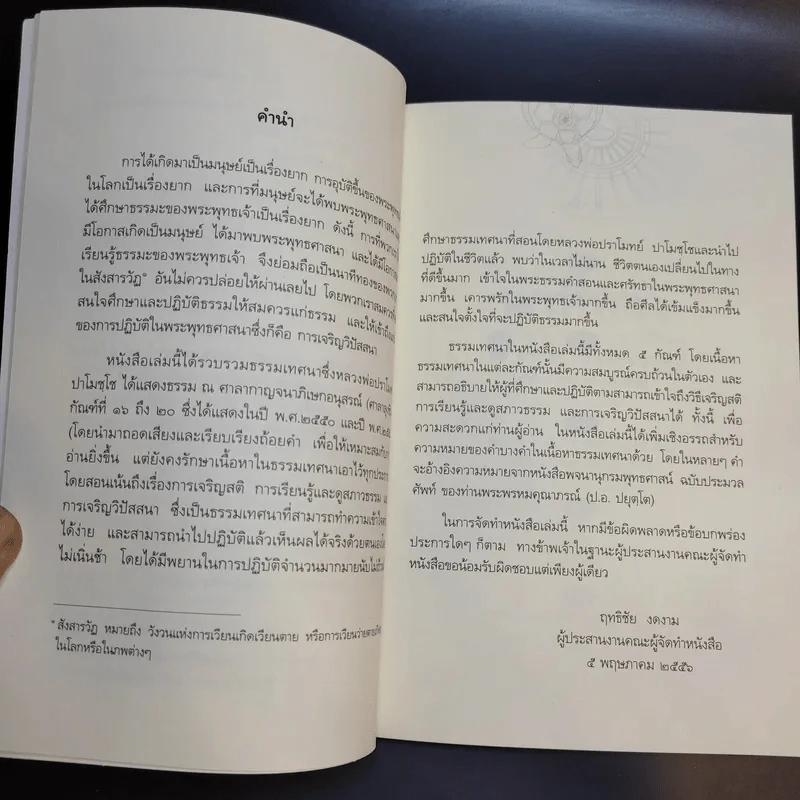 คำนำ
การได้เกิดมาเป็นมนุษย์เป็นเรื่องยาก การอุบัติขึ้นของพระพุทธ
ในโลกเป็นเรื่องยาก และการที่มนุษย์จะได้พบพระพุทธศาสนา
ได้ศึกษาธรรมะของพระพุทธเจ้าเป็นเรื่องยาก ดังนี้ การที่พวกเรา
มีโอกาสเกิดเป็นมนุษย์ ได้มาพบพระพุทธศาสนา และได้มีโอกาส
เรียนรู้ธรรมะของพระพุทธเจ้า จึงย่อมถือเป็นนาทีทองของพวกเรา
ในสังสารวัฏ* อันไม่ควรปล่อยให้ผ่านเลยไป โดยพวกเราสมควร
สนใจศึกษาและปฏิบัติธรรมให้สมควรแก่ธรรม และให้เข้าถึง
ของการปฏิบัติในพระพุทธศาสนาซึ่งก็คือ การเจริญวิปัสสนา
หนังสือเล่มนี้ได้รวบรวมธรรมเทศนาซึ่งหลวงพ่อปราโมทย์
ปาโมชฺโช ได้แสดงธรรม ณ ศาลากาญจนาภิเษกอนุสรณ์
กัณฑ์ที่ ๑๖ ถึง ๒๐ ซึ่งได้แสดงในปี พ.ศ.๒๕๕๐ และปี
(โดยนำมาถอดเสียงและเรียบเรียงถ้อยคำ เพื่อให้เหมาะสมกับ
อ่านยิ่งขึ้น แต่ยังคงรักษาเนื้อหาในธรรมเทศนาเอาไว้ทุกประการ
โดยสอนเน้นถึงเรื่องการเจริญสติ การเรียนรู้และดูสภาวธรรม และ
การเจริญวิปัสสนา ซึ่งเป็นธรรมเทศนาที่สามารถทำความเข้าใจ
ได้ง่าย และสามารถนำไปปฏิบัติแล้วเห็นผลได้จริงด้วยตนเอง
ไม่เนิ่นช้า โดยได้มีพยานในการปฏิบัติจำนวนมากมายนับไม่ถ้วน
* สังสารวัฏ หมายถึง วังวนแห่งการเวียนเกิดเวียนตาย หรือการเวียนว่ายตายเกิด
ในโลกหรือในภพต่างๆ
ศึกษาธรรมเทศนาที่สอนโดยหลวงพ่อปราโมทย์ ปาโมชฺโชและนำไป
ปฏิบัติในชีวิตแล้ว พบว่าในเวลาไม่นาน ชีวิตตนเองเปลี่ยนไปในทาง
ที่ดีขึ้นมาก เข้าใจในพระธรรมคำสอนและศรัทธาในพระพุทธศาสนา
มากขึ้น เคารพรักในพระพุทธเจ้ามากขึ้น ถือศีลได้เข้มแข็งมากขึ้น
และสนใจตั้งใจที่จะปฏิบัติธรรมมากขึ้น
ธรรมเทศนาในหนังสือเล่มนี้มีทั้งหมด ๕ กัณฑ์ โดยเนื้อหา
ธรรมเทศนาในแต่ละกัณฑ์นั้นมีความสมบูรณ์ครบถ้วนในตัวเอง และ
สามารถอธิบายให้ผู้ที่ศึกษาและปฏิบัติตามสามารถเข้าใจถึงวิธีเจริญสติ
การเรียนรู้และดูสภาวธรรม และการเจริญวิปัสสนาได้ ทั้งนี้ เพื่อ
ความสะดวกแก่ท่านผู้อ่าน ในหนังสือเล่มนี้ได้เพิ่มเชิงอรรถสำหรับ
ความหมายของคำบางคำในเนื้อหาธรรมเทศนาด้วย โดยในหลายๆ คำ
จะอ้างอิงความหมายจากหนังสือพจนานุกรมพุทธศาสน์ ฉบับประมวล
ศัพท์ ของท่านพระพรหมคุณาภรณ์ (ป.อ. ปยุตฺโต)
ในการจัดทำหนังสือเล่มนี้ หากมีข้อผิดพลาดหรือข้อบกพร่อง
ประการใดๆ ก็ตาม ทางข้าพเจ้าในฐานะผู้ประสานงานคณะผู้จัดทำ
หนังสือขอน้อมรับผิดชอบแต่เพียงผู้เดียว
ฤทธิชัย งดงาม
ผู้ประสานงานคณะผู้จัดทำหนังสือ
๕ พฤษภาคม ๒๕๕๖